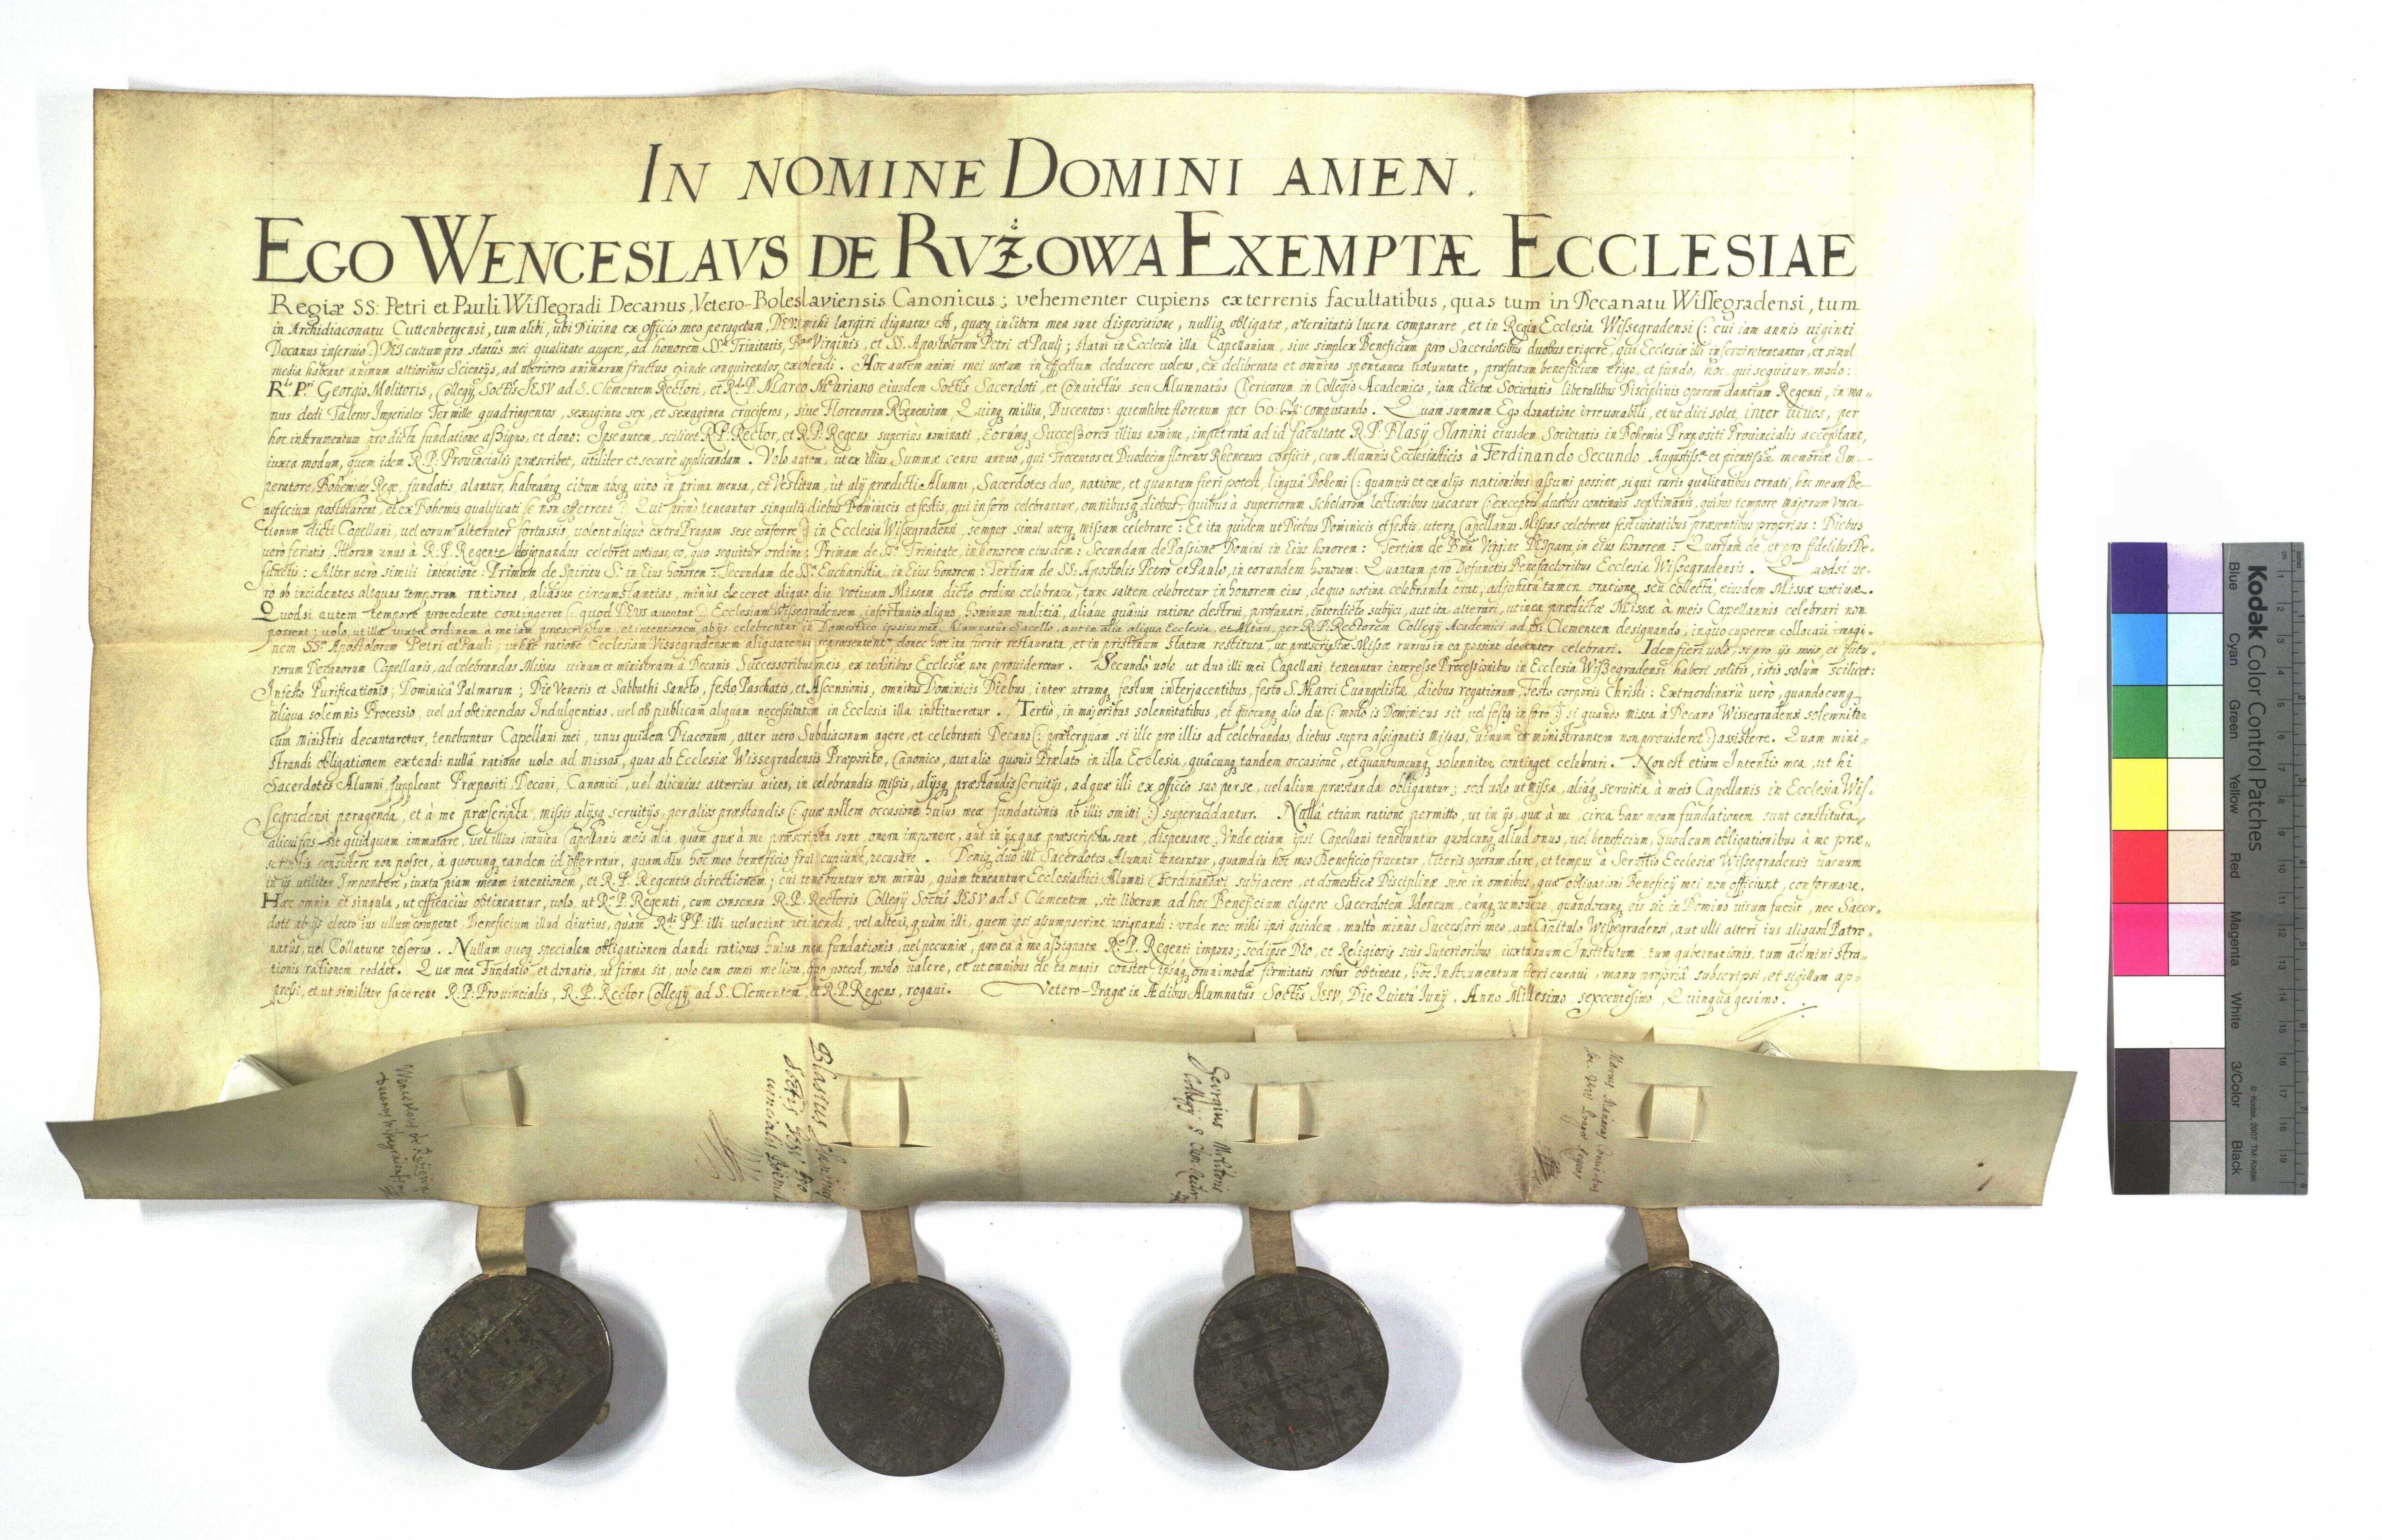 IN NOMINE DOMINI AMEN.
EGO WENCESLAVS DE RVŻOWA EXEMPTÆ ECCLESIAE
Regiæ SS: Petri et Pauli Wissegradi Decanus, Vetero-Boleslaviensis Canonicus; vehementer cupiens ex terrenis facultatibus, quas tum in Decanatu Wissegradensi, tum
in Archidiaconatu Cuttenbergensi, tum alibi, ubi Divina ex officio meo peragetam, DEVS mihi largiri dignatus est, quæq in libera mea sunt dispositione, nulliq obligatæ, æternitatis lucra comparare, et in Regia Ecclesia Wissegradensi (: cui iam annis uiginti
Decanus inseruio :) DEI cultum pro statûs mei qualitate augere, ad honorem SS Trinitatis, B Virginis, et SS. Apostolorum Petri et Pauli; statui in Ecclesia illa Capellaniam, siue simplex Beneficium pro Sacerdotibus duobus erigere, qui Ecclesiæ illi inseruire teneantur, et simul
media habeant animum altioribus Scientijs, ad uberiores animarum fructus exinde conquirendos, excolendi. Hoc autem animi mei uotum in effectum deducere uolens, ex deliberata et omnino spontanea uoluntate, præfatum beneficium erigo, et fundo, hoc, qui sequitur, modo:
R P. Georgio Molitoris, Collegij Soctis IESV ad S. Clementem Rectori, et R. P. Marco Mariano eiusdem Soctis Sacerdoti, et Conuictûs seu Alumnatûs Clericorum in Collegio Academico, iam dictæ Societatis liberalibus Disciplinis operam dantium Regenti, in ma-
nus dedi Taleros Imperiales Ter mille quadringentos, sexaginta sex, et sexaginta cruciferos, siue Florenorum Rhenensium, Quinq millia, Ducentos: quemlibet florenum per 60 computando. Quam summam Ego donatione irreuocabili, et ut dici solet, inter uiuos, per
hoc instrumentum pro dicta fundatione assigno, et dono: Ipse autem, scilicet R.P. Rector, et R.P. Regens superiùs nominati, eorumq Successores illius nomine, impetratâ ad id facultate R.P. Blasij Slanini eiusdem Societatis in Bohemia Præpositi Prouincialis acceptant,
iuxta modum, quem idem R.P. Prouincialis præscribet, utiliter et securè applicandam. Volo autem, ut ex illius Summæ censu annuo, qui Trecentos et Duodecim florenos Rhenenses conficit, cum Alumnis Ecclesiasticis à Ferdinando Secundo, Augustiss. et pientissæ memoriæ Im-
peratore, Bohemiæq Rege, fundatis, alantur, habeantq cibum absq uino in prima mensa, et Vestitum, ut alij prædicti Alumni, Sacerdotes duo, natione, et quantum fieri potest, linguâ Bohemi (: quamuis et ex alijs nationibus assumi possint, si qui raris qualitatibus ornati, hoc meum Be-
neficium postularent, et ex Bohemis qualificati se non offerrent :) Qui primò teneantur singulis diebus Dominicis et festis, qui in foro celebrantur, omnibusq diebus, quibus à superiorum Scholarum lectionibus uacatur (: exceptis duabus continuis septimanis, quibus tempore majorum Vaca-
tionum dicti Capellani, uel eorum alteruter fortassis, uolent aliquò extra Pragam sese conferre :) in Ecclesia Wissegradensi, semper simul uterq missam celebrare: Et ita quidem ut Diebus Dominicis et festis, uterq Capellanus Missas celebrent festiuitatibus præsentibus proprias: Diebus
uerò feriatis, Illorum unus à R.P. Regente designandus celebret uotiuas, eo, quo sequitur ordine: Primam de S. Trinitate, in honorem eiusdem: Secundam de Passione Domini in Eius honorem: Tertiam de B. Virgine DEIpara, in eius honorem: Quartam de, et pro fidelibus De-
functis: Alter uerò simili intentione: Primam de Spiritu S. in Eius honorem: Secundam de SS. Eucharistia, in Eius honorem: Tertiam de SS: Apostolis Petro et Paulo, in eorundem honorem: Quartam pro Defunctis Benefactoribus Ecclesiæ Wissegradensis. Quodsi ue-
rò ob incidentes aliquas temporum rationes, aliasue circumstantias, minùs deceret aliquo die Votiuam Missam dicto ordine celebrare, tunc saltem celebretur in honorem eius, de quo uotiua celebranda erat, adiunctâ tamen oratione, seu collectâ, eiusdem Missæ uotiuæ.
Quodsi autem tempore procedente contingeret (: quod DEVS auertat :) Ecclesiam Wissegradensem, infortunio aliquo, hominum malitiâ, aliáue quâuis ratione destrui, profanari, interdicto subijci, aut ita alterari, ut in ea prædictæ Missæ à meis Capellanis celebrari non
possent; uolo, ut illæ iuxta ordinem à me iam præscriptum, et intentionem, ab ijs celebrentur in Domestico ipsiusmet Alumnatûs Sacello, aut in alia aliqua Ecclesia, et Altari, per R.P. Rectorem Collegij Academici ad S. Clementem designando, in quo cuperem collocari imagi-
nem SS. Apostolorum Petri et Pauli; ut hac ratione Ecclesiam Wissegradensem aliquatenus repræsentent, donec hæc ita fuerit restaurata, et in pristinum statum restituta, ut præscriptæ Missæ rursus in ea possint decenter celebrari. Idem fieri uolo, si pro ijs meis, et futu-
rorum Decanorum Capellanis, ad celebrandas Missas uinum et ministrans à Decanis Successoribus meis, ex reditibus Ecclesiæ non prouideretur. Secundò uolo, ut duo illi mei Capellani teneantur interesse Processionibus in Ecclesia Wissegradensi haberi solitis, istis solùm scilicet:
In festo Purificationis; Dominicâ Palmarum; Die Veneris et Sabbathi Sancto, festo Paschatis, et Ascensionis, omnibus Dominicis Diebus, inter utrumq festum interjacentibus, festo S. Marci Euangelistæ, diebus rogationum, Festo corporis Christi: Extraordinariè uerò, quandocunq
aliqua solemnis Processio, uel ad obtinendas Indulgentias, uel ob publicam aliquam necessitatem in Ecclesia illa institueretur. Tertiò, in majoribus solennitatibus, et quocunq alio die (: modò is Dominicus sit uel festus in foro :) si quando missa à Decano Wissegradensi solemniter
cum ministris decantaretur, tenebuntur Capellani mei, unus quidem Diaconum, alter uero Subdiaconum agere, et celebranti Decano (: præterquam si ille pro illis ad celebrandas, diebus supra assignatis missas, uinum et ministrantem non prouideret :) assistere. Quam mini-
strandi obligationem extendi nullâ ratione uolo ad missas, quas ab Ecclesiæ Wissegradensis Præposito, Canonico, aut alio quouis Prælato in illa Ecclesia, quâcunq tandem occasione, et quantumcunq solenniter continget celebrari. Non est etiam Intentis mea, ut hi
Sacerdotes Alumni suppleant Præpositi, Decani, Canonici, uel alicuius alterius uices, in celebrandis missis, alijsq præstandis seruitijs, ad quæ illi ex officio suo per se, uel alium præstanda obligantur; sed uolo ut missæ, aliáq seruitia à meis Capellanis in Ecclesia Wis-
segradensi peragenda, et à me præscripta, missis alijsq seruitijs, per alios præstandis (: quæ nollem occasione huius meæ fundationis ab illis omitti :) superaddantur. Nullâ etiam ratione permitto, ut in ijs, quæ à me, circa hanc meam fundationem sunt constituta,
alicui fas sit quidquam immutare, uel illius intuitu Capellanis meis alia, quàm quæ à me præscripta sunt, onera imponere, aut in ijs quæ præscripta sunt, dispensare. Vnde etiam ipsi Capellani tenebuntur quodcunq aliud onus, uel beneficium, quod cum obligationibus à me præ-
scriptis consistere non posset, à quocunq tandem id offerretur, quamdiu hoc meo beneficio frui cupiunt, recusare. Deniq duo illi Sacerdotes Alumni teneantur, quamdiu hoc meo Beneficio fruentur, litteris operam dare, et tempus à Seruitio Ecclesiæ Wissegradensis uacuum
in ijs utiliter Impendere, iuxta piam meam intentionem, et R.P. Regentis directionem; cui tenebuntur non minùs, quàm teneantur Ecclesiastici Alumni Ferdinandæi subjacere, et domesticæ Disciplinæ sese in omnibus, quæ obligationi Beneficij mei non officiunt, conformare.
Hæc omnia et singula, ut efficaciùs obtineantur, uolo, ut R.P. Regenti, cum consensu R.P. Rectoris Collegij Soctis IESV ad S. Clementem, sit liberum ad hoc Beneficium eligere Sacerdotem Idoneum, eumq remouere, quandocunq eis sic in Domino uisum fuerit, nec Sacer-
doti ab ijs electo ius ullum competat Beneficium illud diutius, quàm R. PP. illi uoluerint retinendi, uel alteri, quàm illi, quem ipsi assumpserint resignandi: unde nec mihi ipsi quidem, multò minùs Successori meo, aut Capitulo Wissegradensi, aut ulli alteri ius aliquod Patro-
natûs, uel Collaturæ reseruo. Nullam quoq specialem obligationem dandi rationes huius meæ fundationis, uel pecuniæ, pro ea à me assignatæ R.P. Regenti impono; sed ipse Deo, et Religiosis suis Superioribus, iuxta suum Institutum, tum gubernationis, tum administra-
tionis rationem reddet. Quæ mea Fundatio et donatio, ut firma sit, uolo eam omni meliori, quo potest, modo ualere, et ut omnibus de ea magis constet, ipsaq omnimodæ firmitatis robur obtineat, hoc Instrumentum fieri curaui, manu propriâ subscripsi, et sigillum ap-
pressi, et ut similiter facerent R.P. Prouincialis, R.P. Rector Collegij ad S. Clementem, et R.P. Regens, rogaui. Vetero-Pragæ in Ædibus Alumnatûs Soctis IESV, Die Quinta Junij, Anno Millesimo, sexcentesimo, Quinquagesimo.
Wenceslaus de
Decanus
Blasius Slanina
Soctis Jesu Pro
uincialis Bohemiæ
Georgius Molitoris
Collegij S Clem Rector
Marcus Marianus Conuictus
Soc. Jesu Pragæ Regens
Kodak Color Control Patches
© Kodak, 2007 TM: Kodak
Blue Cyan Green Yellow Red Magenta White 3/Color Black